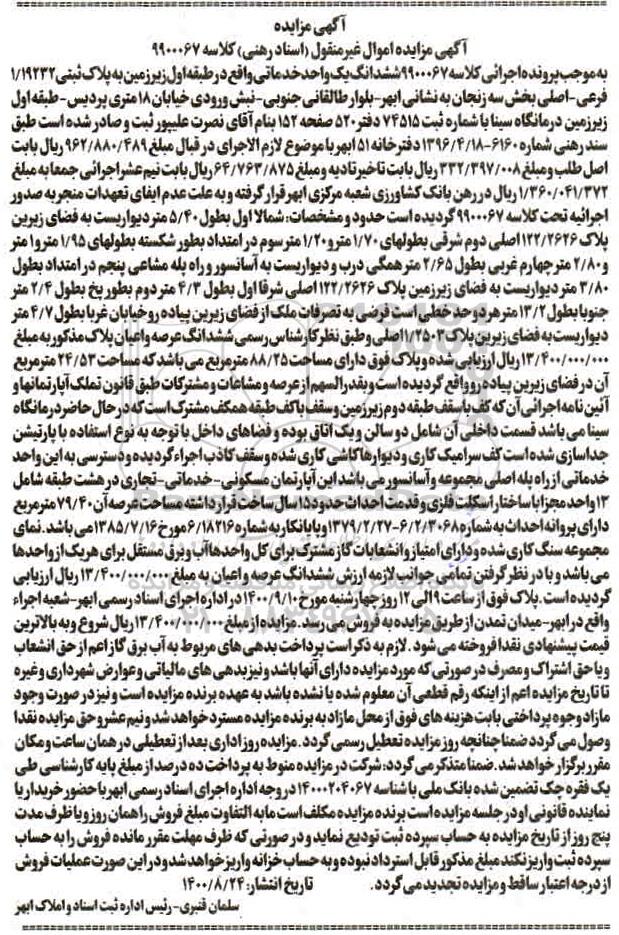 آگهی مزایده
آگهی مزایده اموال غیرمنقول (اسناد رهنی) کلاسه ۹۹۰۰۰۶۷
به موجب پرونده اجرائی کلاسه ۹۹۰۰۰۶۷ ششدانگ یک واحد خدماتی واقع در طبقه اول زیرزمین به پلاک ثبتی ۱/۱۹۲۳۲
فرعی-اصلی بخش سه زنجان به نشانی ابهر-بلوار طالقانی جنوبی-نبش ورودی خیابان ۱۸ متری پردیس-طبقه اول
زیرزمین درمانگاه سینا با شماره ثبت ۷۴۵۱۵ دفتر ۵۲۰ صفحه ۱۵۲ بنام آقای نصرت علیپور ثبت و صادر شده است طبق
سند رهنی شماره ۶۱۶۰-۱۳۹۶/۴/۱۸ دفترخانه ۵۱ ابهر با موضوع لازم الاجرای در قبال مبلغ ۹۶۲/۸۸۰/۴۸۹ ریال بابت
اصل طلب و مبلغ ۳۳۲/۳۹۷/۰۰۸ ریال بابت تاخیر تادیه و مبلغ ۶۴/۷۶۳/۸۷۵ ریال بابت نیم عشر اجرائی جمعا به مبلغ
۱/۳۶۰/۰۴۱/۳۷۲ ریال در رهن بانک کشاورزی شعبه مرکزی ابهر قرار گرفته و به علت عدم ایفای تعهدات منجر به صدور
اجرائیه تحت کلاسه ۹۹۰۰۰۶۷ گردیده است حدود و مشخصات: شمالا اول بطول ۵/۴۰ متر دیواریست به فضای زیرین
پلاک ۱۲۲/۲۶۲۶ اصلی دوم شرقی بطولهای ۱/۷۰ متر و ۱/۲۰ متر سوم در امتداد بطور شکسته بطولهای ۱/۹۵ متر و ۱ متر
و ۲/۸۰ متر چهارم غربی بطول ۲/۶۵ متر همگی درب و دیواریست به آسانسور و راه پله مشاعی پنجم در امتداد بطول
۳/۸۰ متر دیواریست به فضای زیرزمین پلاک ۱۲۲/۲۶۲۶ اصلی شرقا اول بطول ۴/۳ متر دوم بطور پخ بطول ۲/۴ متر
جنوبا بطول ۱۳/۲ متر هر دو حد خطی است فرضی به تصرفات ملک از فضای زیرین پیاده رو خیابان غربا بطول ۴/۷ متر
دیواریست به فضای زیرین پلاک ۱/۲۵۰۲ اصلی و طبق نظر کارشناس رسمی ششدانگ عرصه و اعیان پلاک مذکور به مبلغ
۱۳/۴۰۰/۰۰۰/۰۰۰ ریال ارزیابی شده و پلاک فوق دارای مساحت ۸۸/۲۵ مترمربع می باشد که مساحت ۲۴/۵۳ مترمربع
آن در فضای زیرین پیاده رو واقع گردیده است و بقدرالسهم از عرصه و مشاعات و مشترکات طبق قانون تملک آپارتمانها و
آئین نامه اجرائی آن که کف با سقف طبقه دوم زیرزمین و سقف با کف طبقه همکف مشترک است که در حال حاضر درمانگاه
سینا می باشد قسمت داخلی آن شامل دو سالن و یک اتاق بوده و فضاهای داخل با توجه به نوع استفاده با پارتیشن
جداسازی شده است کف سرامیک کاری و دیوارها کاشی کاری شده و سقف کاذب اجرا گردیده و دسترسی به این واحد
خدماتی از راه پله اصلی مجموعه و آسانسور می باشد این آپارتمان مسکونی-خدماتی-تجاری در هشت طبقه شامل
۱۳ واحد مجزا با ساختار اسکلت فلزی و قدمت احداث حدود ۱۵ سال ساخت قرار داشته مساحت عرصه آن ۷۹/۴۰ مترمربع
دارای پروانه احداث به شماره ۶/۲/۳۰۶۸-۱۳۷۹/۲/۲۷ و پایانکار به شماره ۶/۱۸۲۱۶ مورخ ۱۳۸۵/۷/۱۶ می باشد. نمای
مجموعه سنگ کاری شده و دارای امتیاز و انشعابات گاز مشترک برای کل واحدها آب و برق مستقل برای هر یک از واحدها
می باشد و با در نظر گرفتن تمامی جوانب لازمه ارزش ششدانگ عرصه و اعیان به مبلغ ۱۳/۴۰۰/۰۰۰/۰۰۰ ریال ارزیابی
گردیده است. پلاک فوق از ساعت ۹ الی ۱۲ روز چهارشنبه مورخ ۱۴۰۰/۹/۱۰ در اداره اجرای اسناد رسمی ابهر-شعبه اجراء
واقع در ابهر-میدان تمدن از طریق مزایده به فروش می رسد. مزایده از مبلغ ۱۳/۴۰۰/۰۰۰/۰۰۰ ریال شروع و به بالاترین
قیمت پیشنهادی نقدا فروخته می شود. لازم به ذکر است پرداخت بدهی های مربوط به آب برق گاز اعم از حق انشعاب
و یا حق اشتراک و مصرف در صورتی که مورد مزایده دارای آنها باشد و نیز بدهی های مالیاتی و عوارض شهرداری و غیره
تا تاریخ مزایده اعم از اینکه رقم قطعی آن معلوم شده یا نشده باشد به عهده برنده مزایده است و نیز در صورت وجود
مازاد وجوه پرداختی بابت هزینه های فوق از محل مازاد به برنده مزایده مسترد خواهد شد و نیم عشر و حق مزایده نقدا
وصول می گردد ضمنا چنانچه روز مزایده تعطیل رسمی گردد. مزایده روز اداری بعد از تعطیلی در همان ساعت و مکان
مقرر برگزار خواهد شد. ضمنا متذکر می گردد: شرکت در مزایده منوط به پرداخت ده درصد از مبلغ پایه کارشناسی طی
یک فقره چک تضمین شده بانک ملی با شناسه ۱۴۰۰۰۲۰۴۰۶۷ در وجه اداره اجرای اسناد رسمی ابهر با حضور خریدار یا
نماینده قانونی او در جلسه مزایده است برنده مزایده مکلف است مابه التفاوت مبلغ فروش را همان روز و یا ظرف مدت
پنج روز از تاریخ مزایده به حساب سپرده ثبت تودیع نماید و در صورتی که ظرف مهلت مقرر مانده فروش را به حساب
سپرده ثبت واریز نکند مبلغ مذکور قابل استرداد نبوده و به حساب خزانه واریز خواهد شد و در این صورت عملیات فروش
از درجه اعتبار ساقط و مزایده تجدید می گردد. تاریخ انتشار: ۱۴۰۰/۸/۲۴
سلمان قنبری-رئیس اداره ثبت اسناد و املاک ابهر